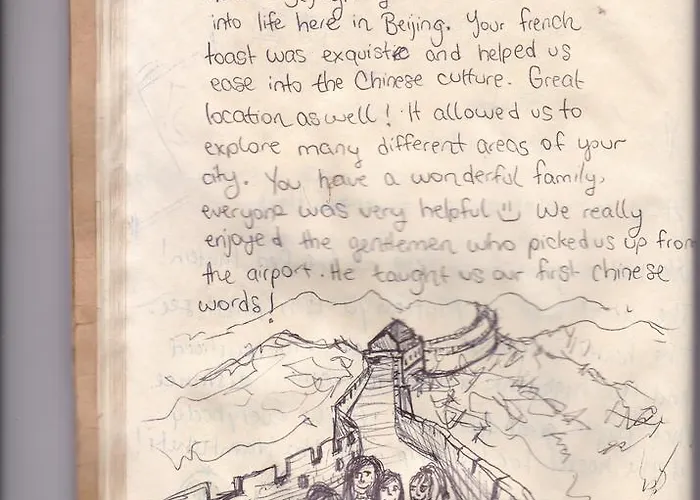 into life here in Beijing. Your french
toast was exquiste and helped us
ease into the Chinese culture. Great
location as well! It allowed us to
explore many different areas of your
city. You have a wonderful family,
everyone was very helpful We really
enjoyed the gentlemen who picked us up from
the airport. He taught us our first chinese
words!